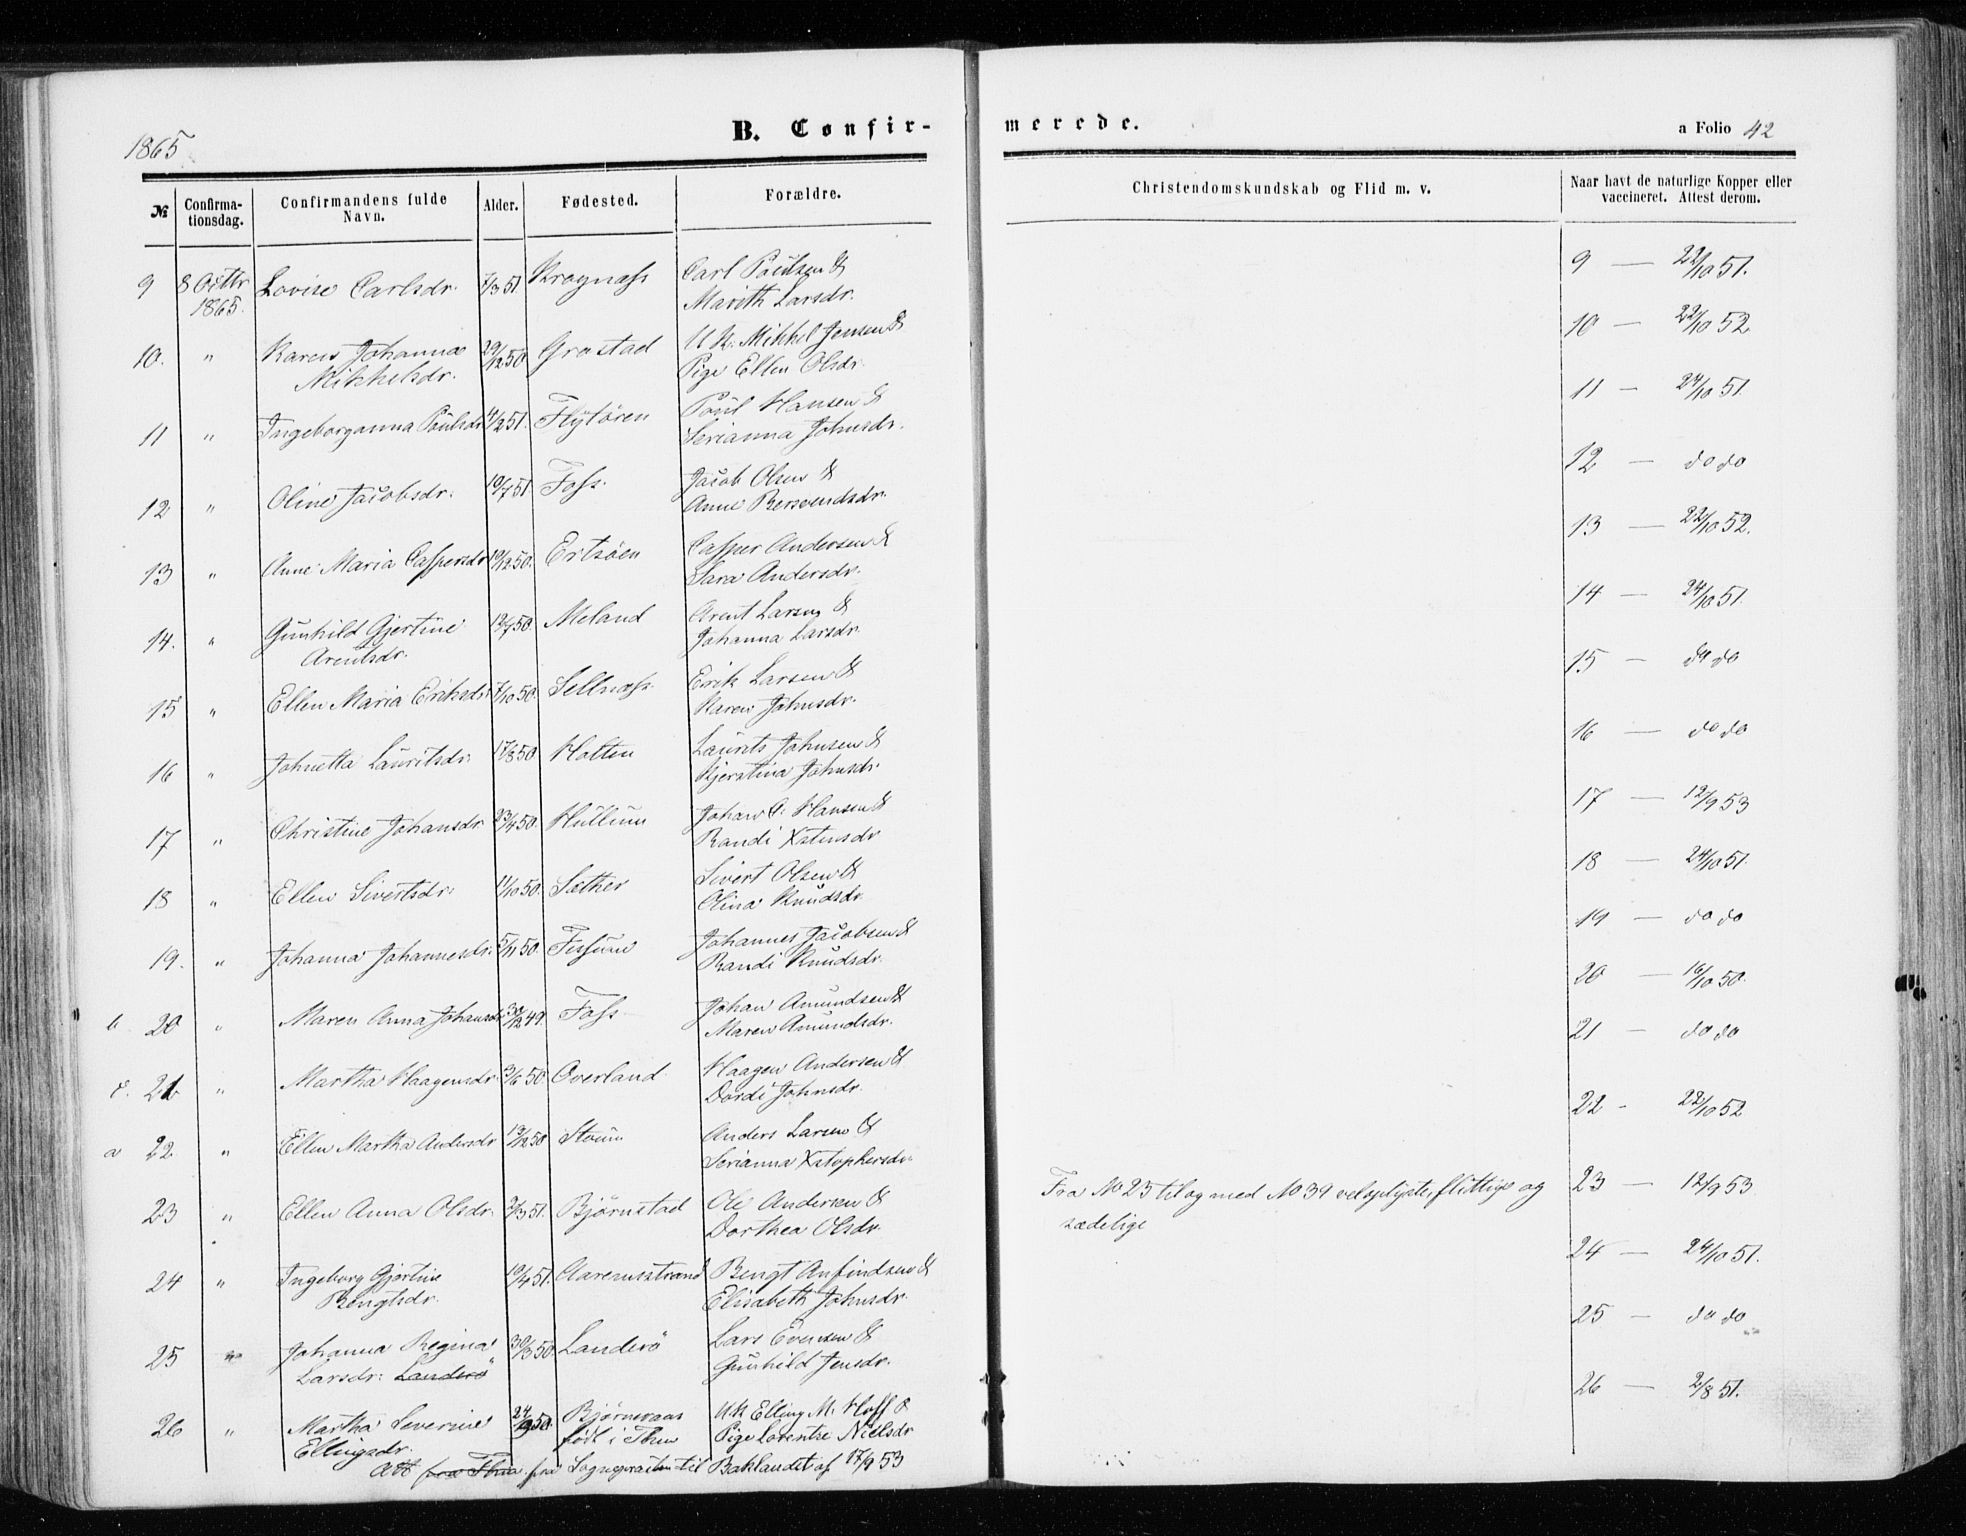 1865
B. Confir-
merede.
a Folio 42
№
Confirma-
tionsdag.
Confirmandens fulde
Navn.
Alder.
Fødested.
Forældre.
Christendomskundskab og Flid m. v.
Naar havt de naturlige Kopper eller
vaccineret. Attest derom.
9 8 Octbr Lovise Carlsdr. 7/3 51. Kragnæss Carl Paulsen &
1865. Marith Larsdr.
10. " Karen Johanna 29/12 50 Grøstad U. K. Mikkel Jensen &
Mikkelsdr. Pige Ellen Olsdr.
11 " Ingeborganna Paulsdr 4/2 51. Flytøren Paul Hansen &
Serianna Johnsdr.
12 " Oline Jacobsdr. 10/7 51 Foss. Jacob Olsen &
Anne Bersvendsdr.
13 " Anne Maria Caspersdr 19/12 50. Casper Andersen &
Sara Andersdr.
14. " Gunhild Gjertine 13/7 50. Meland Arent Larsen &
Arentsdr. Johanna Larsdr.
15 " Ellen Maria Eriksdr. 7/10 50. Sellnæss Erik Larsen &
Karen Johnsdr.
16 " Johnetta Lauritsdr. 17/8 50 Holten Laurits Johnsen &
Kjerstina Johnsdr.
17 " Christine Johansdr 23/4 50. Hullum Johan C. Hansen &
Randi Xstensdr
18 " Ellen Sivertsdr. 11/10 50. Sæther Sivert Olsen &
Olina Knudsdr.
19. " Johanna Johannesdr. 5/11 50. Fossum Johannes Jacobsen &
Randi Knudsdr.
b. 20 " Maren Anna Johansdr 30/12 49. Foss Johan Amundsen &
Maren Amundsdr.
c. 21 " Martha Haagensdr. 3/6 50. Overland Haagen Andersen &
Dordi Johnsdr.
a 22. " Ellen Martha Andersdr 13/12 50 Strum Anders Larsen &
Serianna Xstophersdr.
23 " Ellen Anna Olsdr. 2/3 51. Bjørnstad Ole Andersen &
Dorthea Olsdr.
24 " Ingeborg Gjertine 10/4 51. Bengt Anfindsen &
Bengtsdr. Elisabeth Johnsdr.
25 " Johanna Regina 30/3 50. Landerö Lars Evensen &
Larsdr. Landerö Gunhild Jensdr.
26 " Martha Severine 24/9 50. U K Elling M. Hoff &
Ellingsdr. født i Thrm Pige Lorentse Nielsdr
Att fra Thm fra Sognepræsten til Baklandet af 17/9 53
Fra No 25 til og med No 39 veloplyste, flittige og
sædelige
9 — 22/10 51.
10 — 22/10 52
11 — 24/10 51.
12 — do do
13 — 22/10 52.
14 — 24/10 51.
15 — do do
16 — do do
17 — 12/9 53
18 — 24/10 51.
19 — do do
20 — 16/10 50.
21 — do do
22 - 22/10 52
23 — 12/9 53
24 — 24/10 51.
25 — do do
26 — 2/8 51.